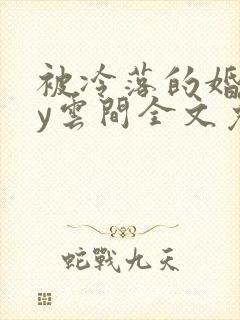 被冷落的婚
y雲間全文
蛇戰九天